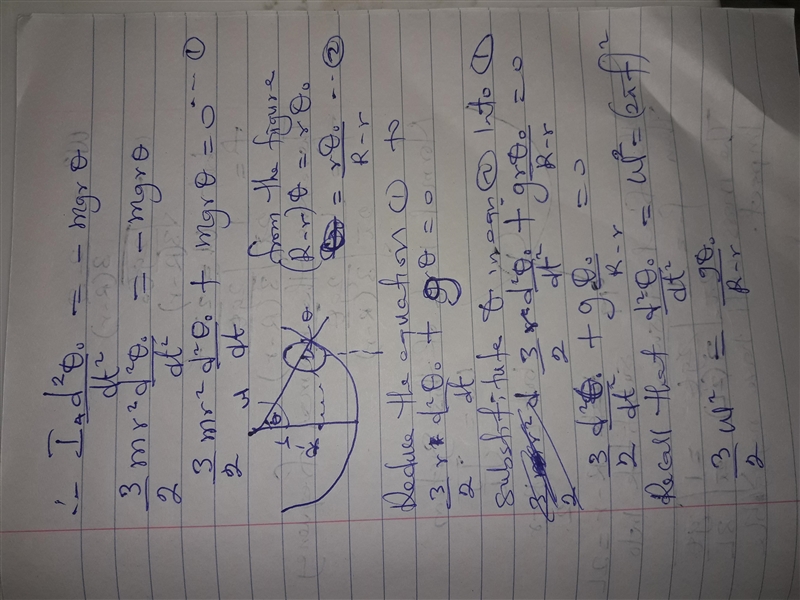 ∴ I_A d²θ₀/dt² = - mgrθ
3/2 mr² d²θ₀/dt² = - mgrθ
3/2 mr² d²θ₀/dt + mgrθ = 0 -- ①
from the figure
(R-r)θ = rθ₀
= rθ₀/R-r -- ②
θ
θ
Reduce the equation ① to
3/2 r d²θ₀/dt + gθ = 0
Substitute θ in eqn ② into ①
3/2 r d²θ₀/dt² + grθ₀/R-r = 0
3/2 d²θ₀/dt² + gθ₀/R-r = 0
Recall that d²θ₀/dt² = W² = (2πf)²
3/2 W² = - gθ₀/R-r